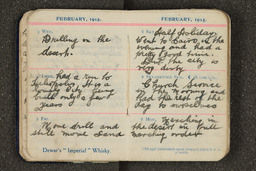 FEBRUARY, 1915.
Drilling in the
desert.
had a run to
Heliopolis. It is a
built only a few
years
More drill and
still more sand
Dewar's "Imperial" Whisky.
FEBRUARY, 1915.
Half Holiday
Went to Cairo in the
evening and had a
pretty good time.
But the city is
very dirty.
Church Service
in the morning and
had the rest of the
day to ourselves
Marching in
the desert in full
marching order